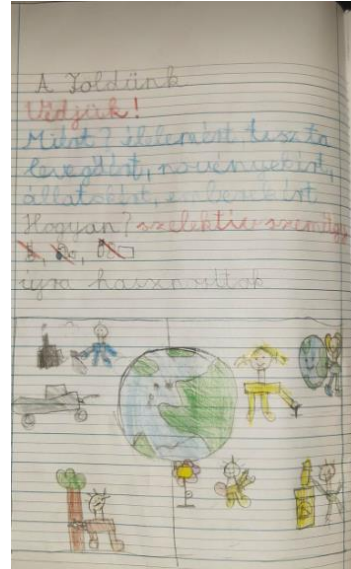 A Földünk
Védjük!
Miért? élelemért, tiszta
levegőért, növényekért,
állatokért, emberekért
Hogyan? szelektív
újra